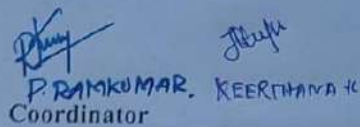 P. RAMKUMAR. KEERTHANA K
Coordinator